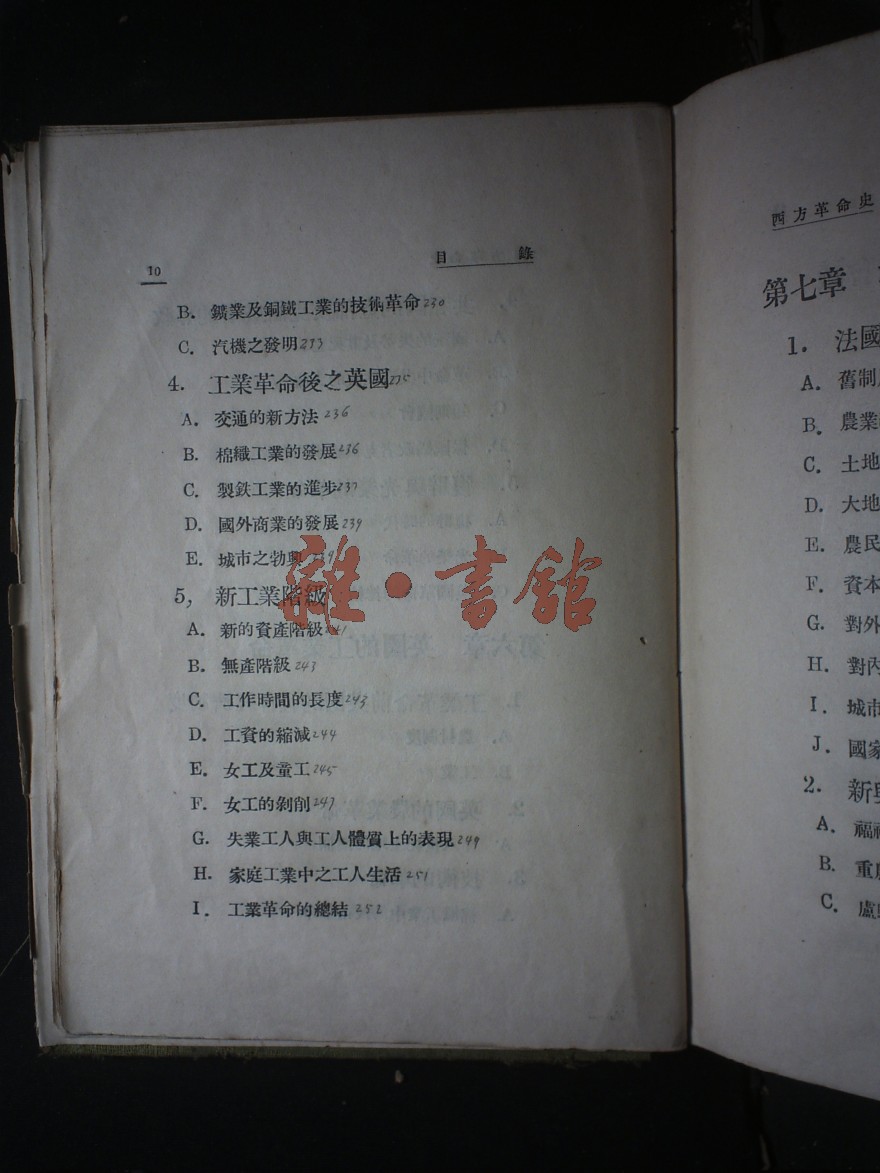 10
目錄
B. 鑛業及銅鐵工業的技術革命 230
C. 汽機之發明 233
4. 工業革命後之英國 235
A. 交通的新方法 236
B. 棉織工業的發展 236
C. 製鉄工業的進步 237
D. 國外商業的發展 239
E. 城市之勃興 239
5, 新工業階級
A. 新的資產階級 241
B. 無產階級 243
C. 工作時間的長度 243
D. 工資的縮減 244
E. 女工及童工 245
F. 女工的剝削 247
G. 失業工人與工人體質上的表現 249
H. 家庭工業中之工人生活 251
I. 工業革命的總結 252
雜·書館
西方革命史
第七章
1. 法國
A. 舊制
B. 農業
C. 土地
D. 大地
E. 農民
F. 資本
G. 對外
H. 對內
I. 城市
J. 國家
2. 新興
A. 福
B. 重
C. 盧